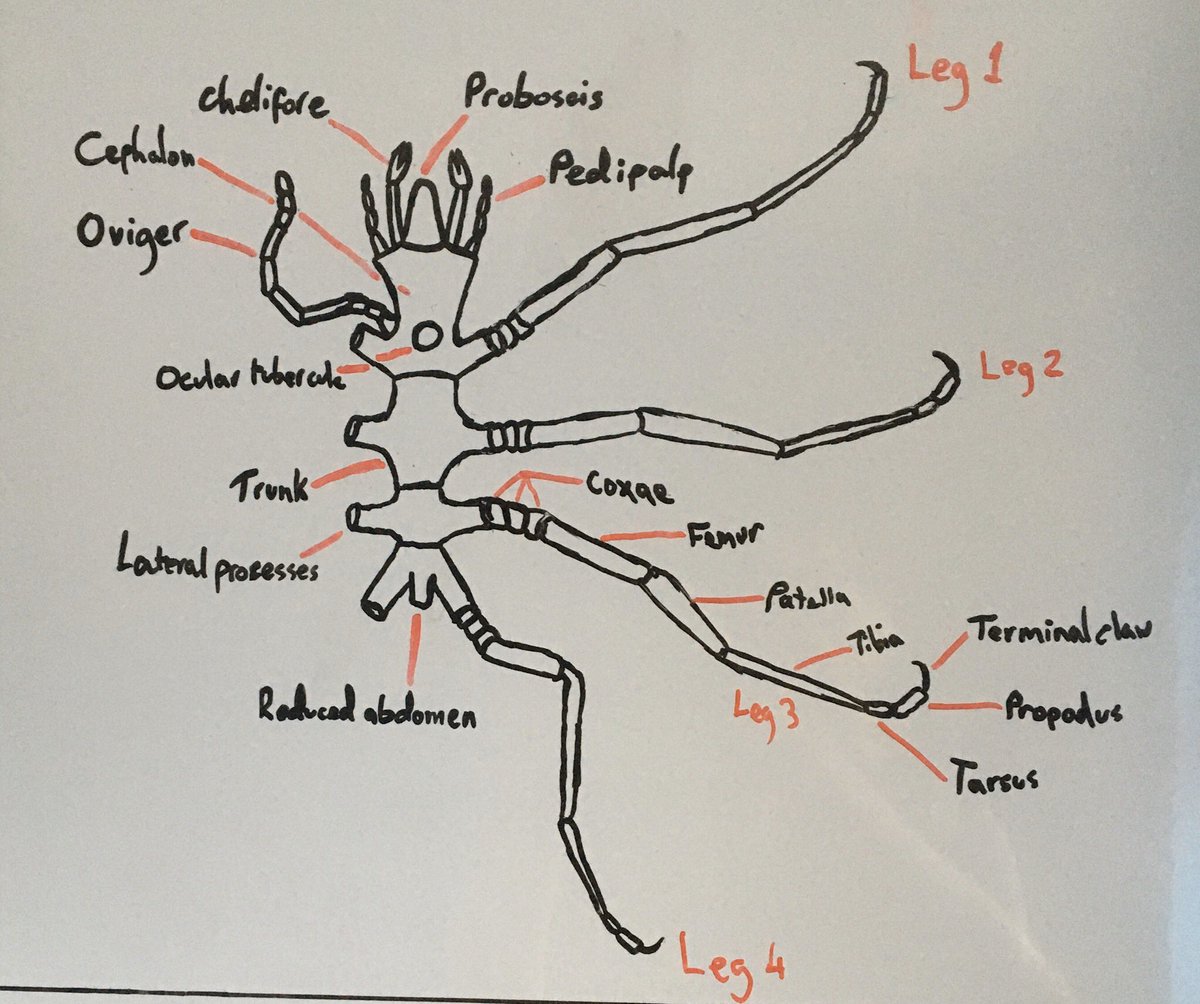 Leg 1
Chelifore
Proboscis
Cephalon
Pedipalp
Oviger
Leg 2
Ocular tubercule
Trunk
Coxae
Femur
Lateral processes
Patella
Tibia
Terminal claw
Reduced abdomen
Leg 3
Propodus
Tarsus
Leg 4